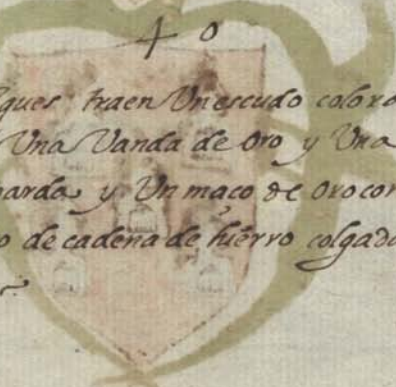 40
ques traen Un escudo coloro
Una Vanda de Oro y Una
parda y Un maço de Oro con
o de cadena de hierro colgado